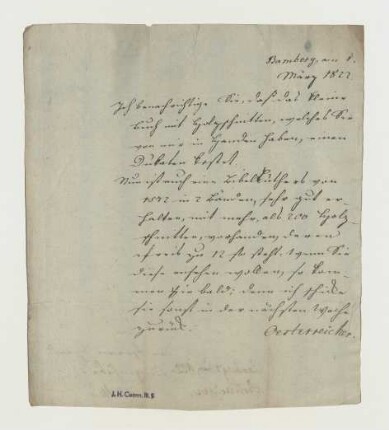 Bamberg, am 8.
März 1822.
Ich benachrichtige Sie, daß das kleine
Buch mit Holzschnitten, welches Sie
von mir in Handen haben, einen
Dukaten kostet.
Nun ist auch eine Bibel Luthers von
in 2 Bänden, sehr gut er-
halten, mit mehr, als 200 Holz-
schnitten, vorhanden, deren
Preis zu 12 fl. steht. Wenn Sie
diese ansehen wollen, so kom-
men Sie bald; denn ich schicke
sie sonst in der nächsten Woche
zurück.
Oesterreicher.